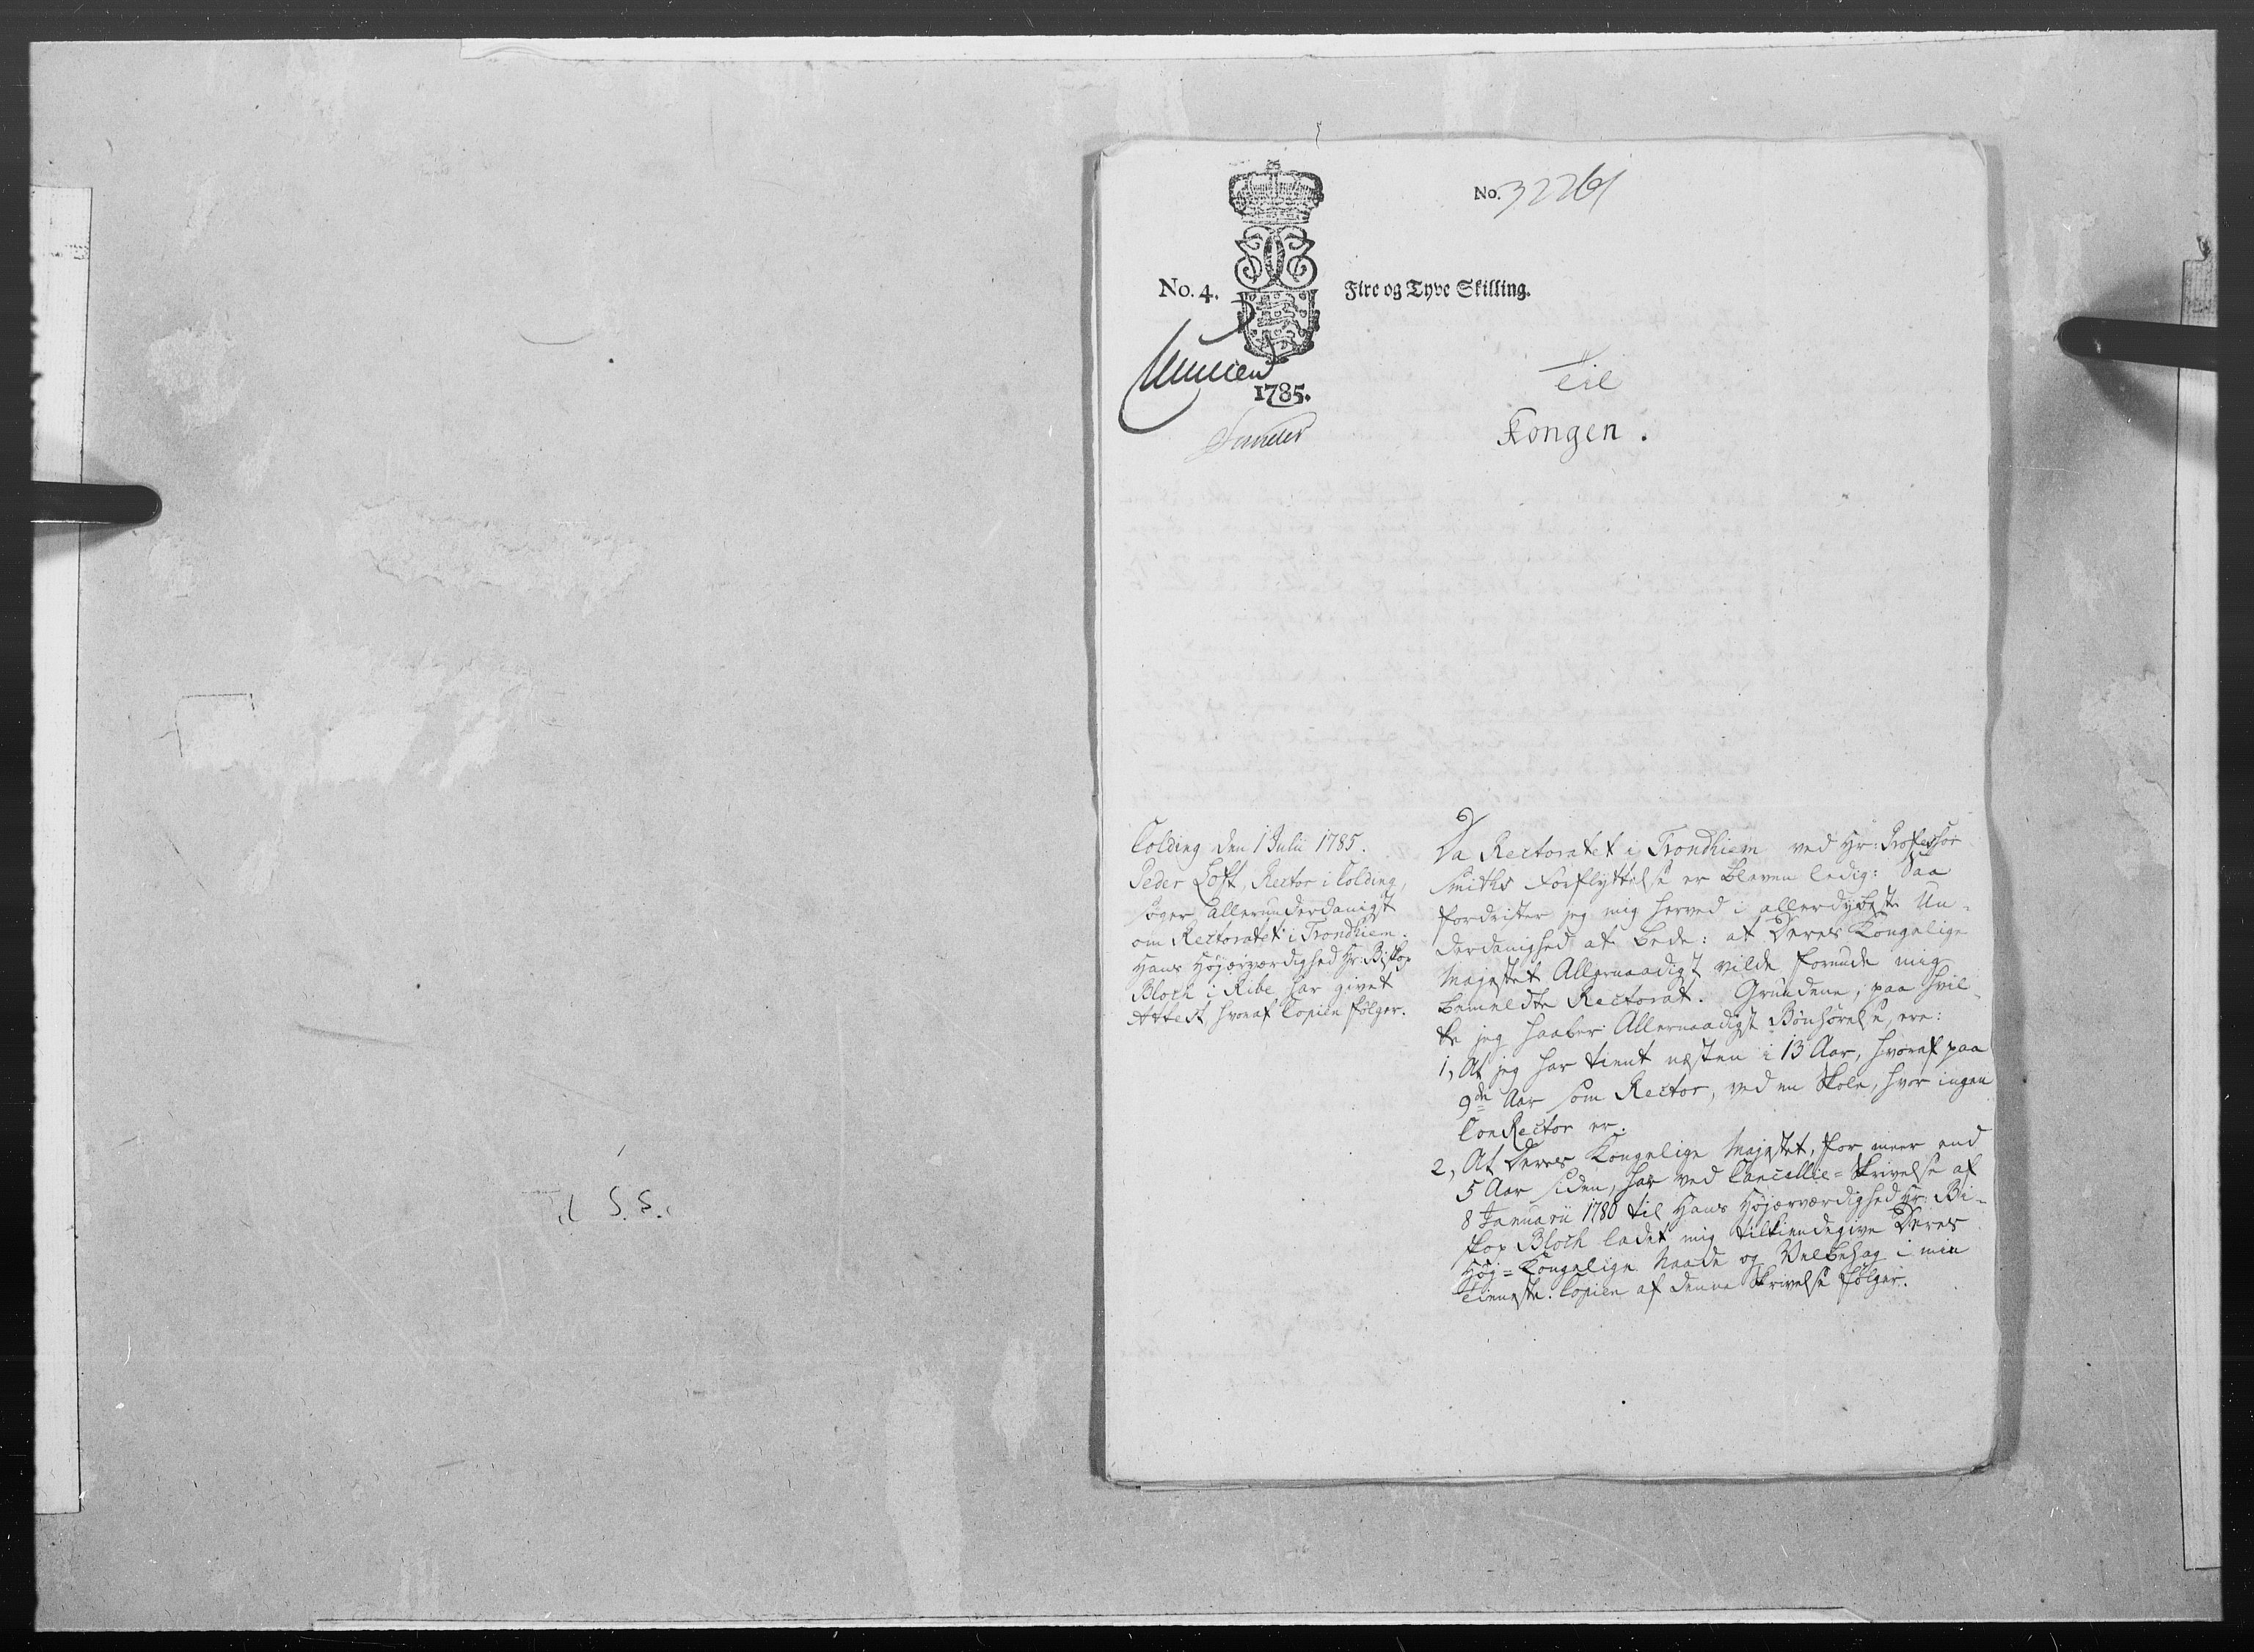 Til S.S.
No. 32261
No. 4. Fire og Tyve Skilling.
1785.
Til
Kongen.
Colding den 1 Julii 1785.
Peder Loft, Rector i Colding,
søger allerunderdanigst
om Rectoratet i Trondhiem.
Hans Høyærværdighed Hr: Biskop
Bloch i Ribe har givet
Attest, hvoraf Copien følger.
Da Rectoratet i Trondhiem ved Hr: Professor
Smiths Forflyttelse er bleven ledig: Saa
fordrister jeg mig herved i allerdybeste Un-
derdanighed at bede: at Deres Kongelige
Majestet Allernaadigst vilde forunde mig
bemeldte Rectorat. Grundene, paa hvil-
ke jeg haaber Allernaadigst Bønhørelse, ere:
1, At jeg har tient næsten i 13 Aar, hvoraf paa
9de Aar som Rector, ved en Skole, hvor ingen
ConRector er.
2, At Deres Kongelige Majestet, for meer end
5 Aar siden, har ved Cancellie-Skrivelse af
8 Januarii 1780 til Hans Høyærværdighed Hr: Bi-
skop Bloch ladet mig tilkiendegive Deres
Høy-Kongelige Naade og Velbehag i min
Tieneste. Copien af denne Skrivelse følger.